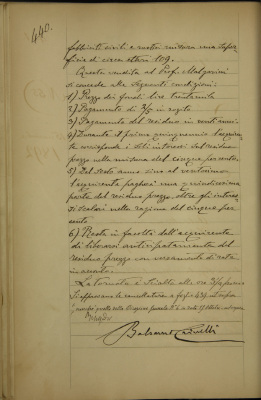 440.
fabbricati civili e rustici misura una superficie di circa ettari 109.
Questa vendita al Prof. Malgarini
si concede alle seguenti condizioni:
1) Prezzo dei fondi lire trentamila
2) Pagamento di 3/10 in rogito
3) Pagamento del residuo in venti anni.
4) Durante il primo quinquennio l'acquirente
corrisponde i soli interessi sul residuo
prezzo nella misura del cinque per cento.
5) Dal sesto anno sino al ventesimo
l'acquirente pagherà una quindicesima
parte del residuo prezzo, oltre gli interessi
scalari nella ragione del cinque per
cento
6) Resta in facoltà dell'acquirente
di liberarsi anticipatamente del
residuo prezzo con versamento di rata
in acconto.
La tornata è sciolta alle ore
Si approvano le cancellature a foglio